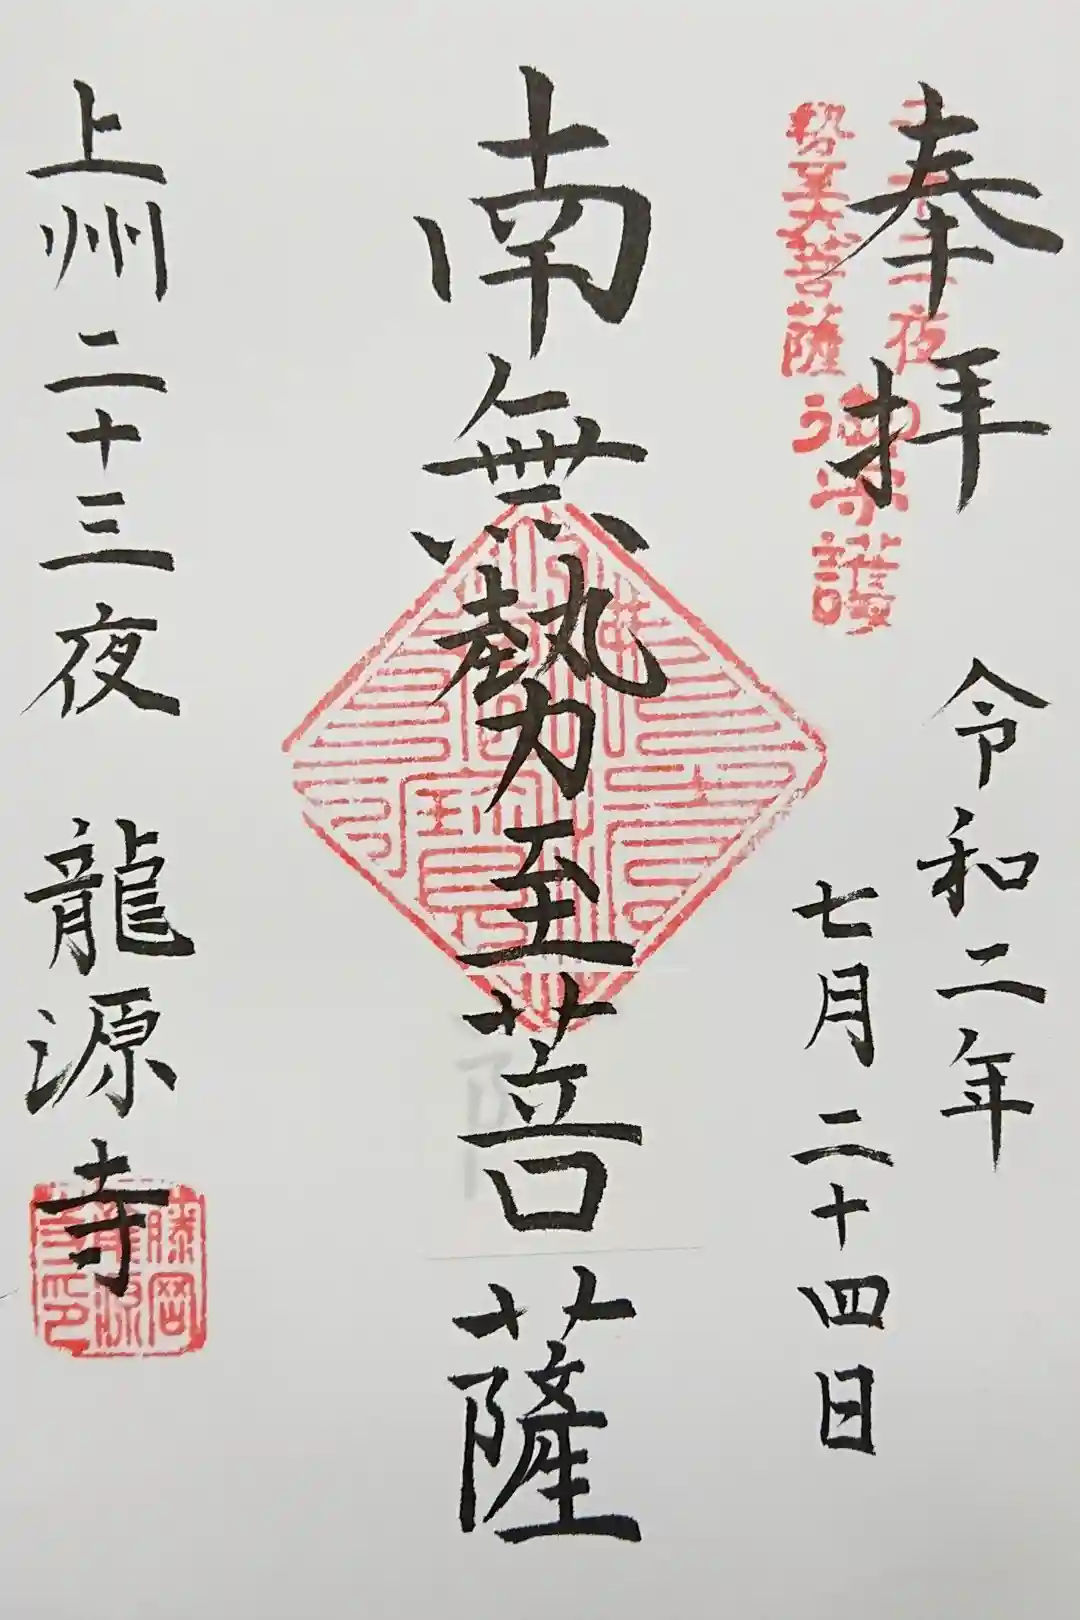 奉拝
令和二年
七月二十四日
二十三夜
勢至大菩薩
御守護
南無勢至菩薩
上州二十三夜 龍源寺
藤岡
龍源
寺印